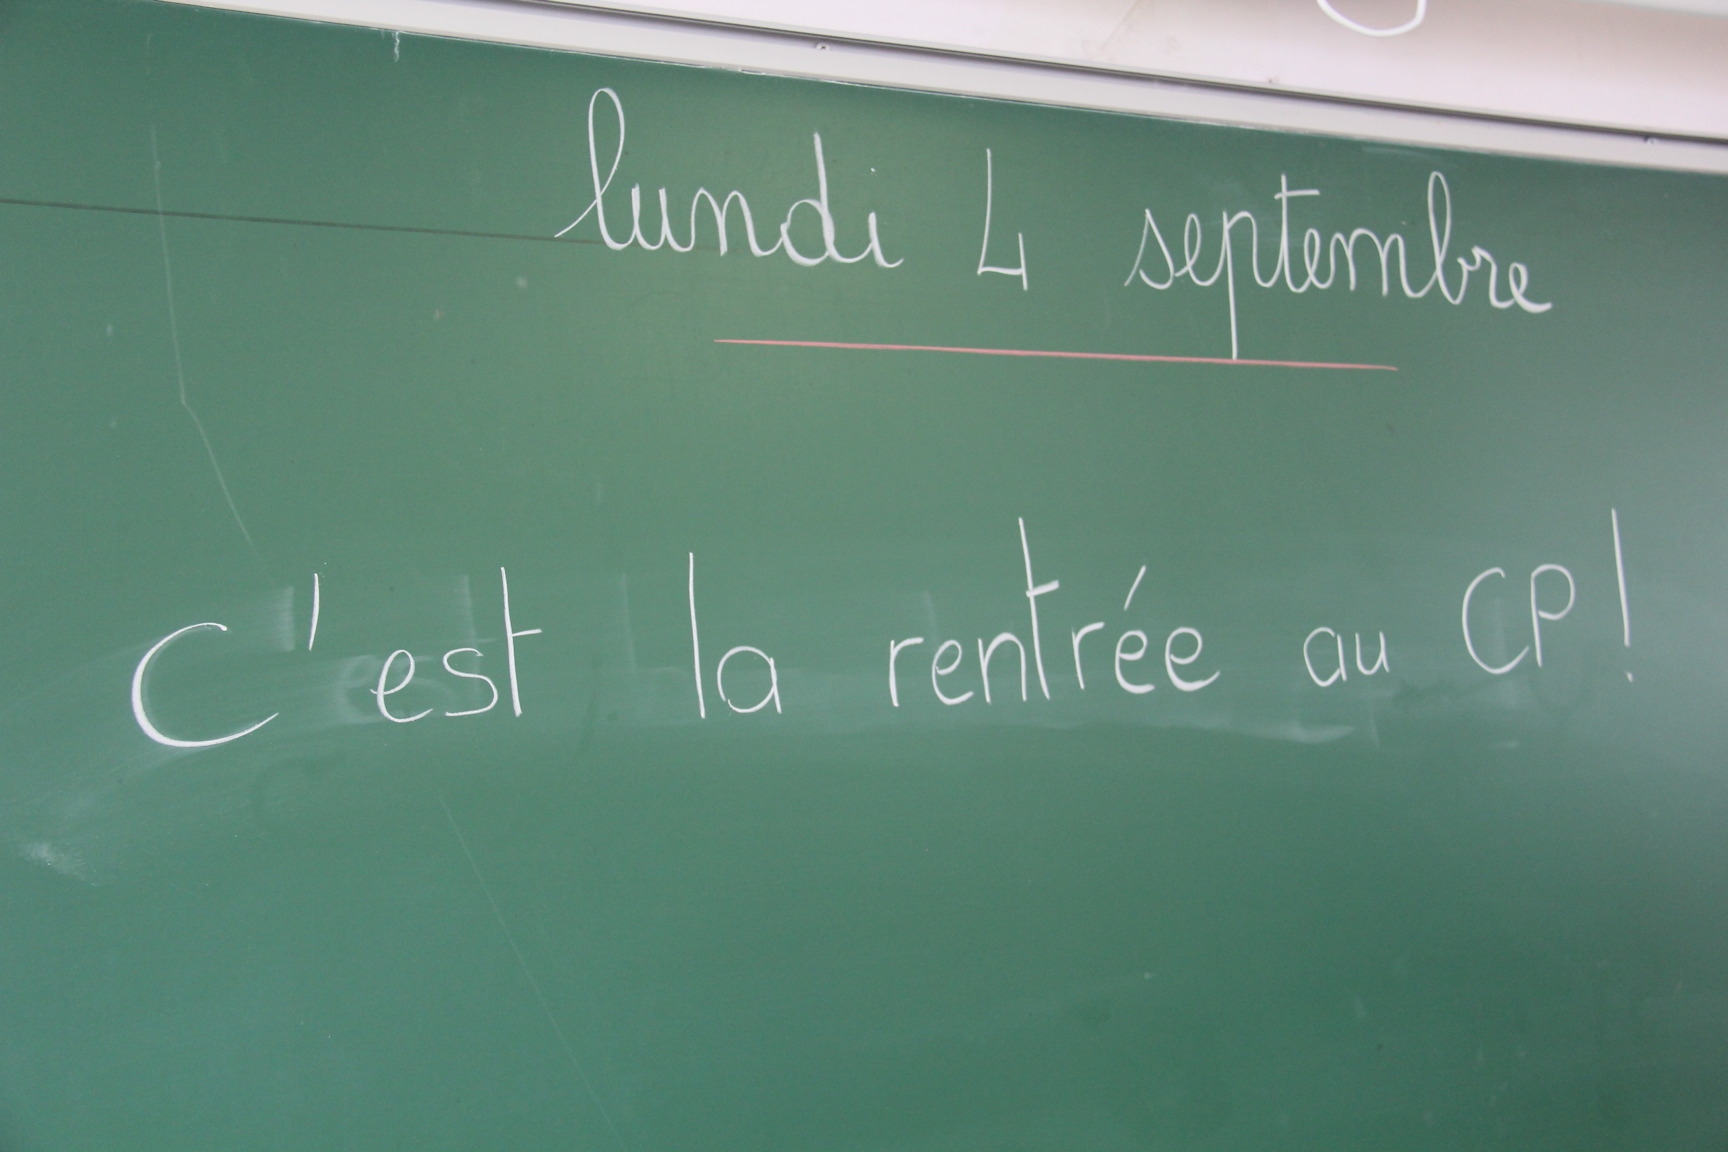 lundi 4 septembre
C'est la rentrée au CP!